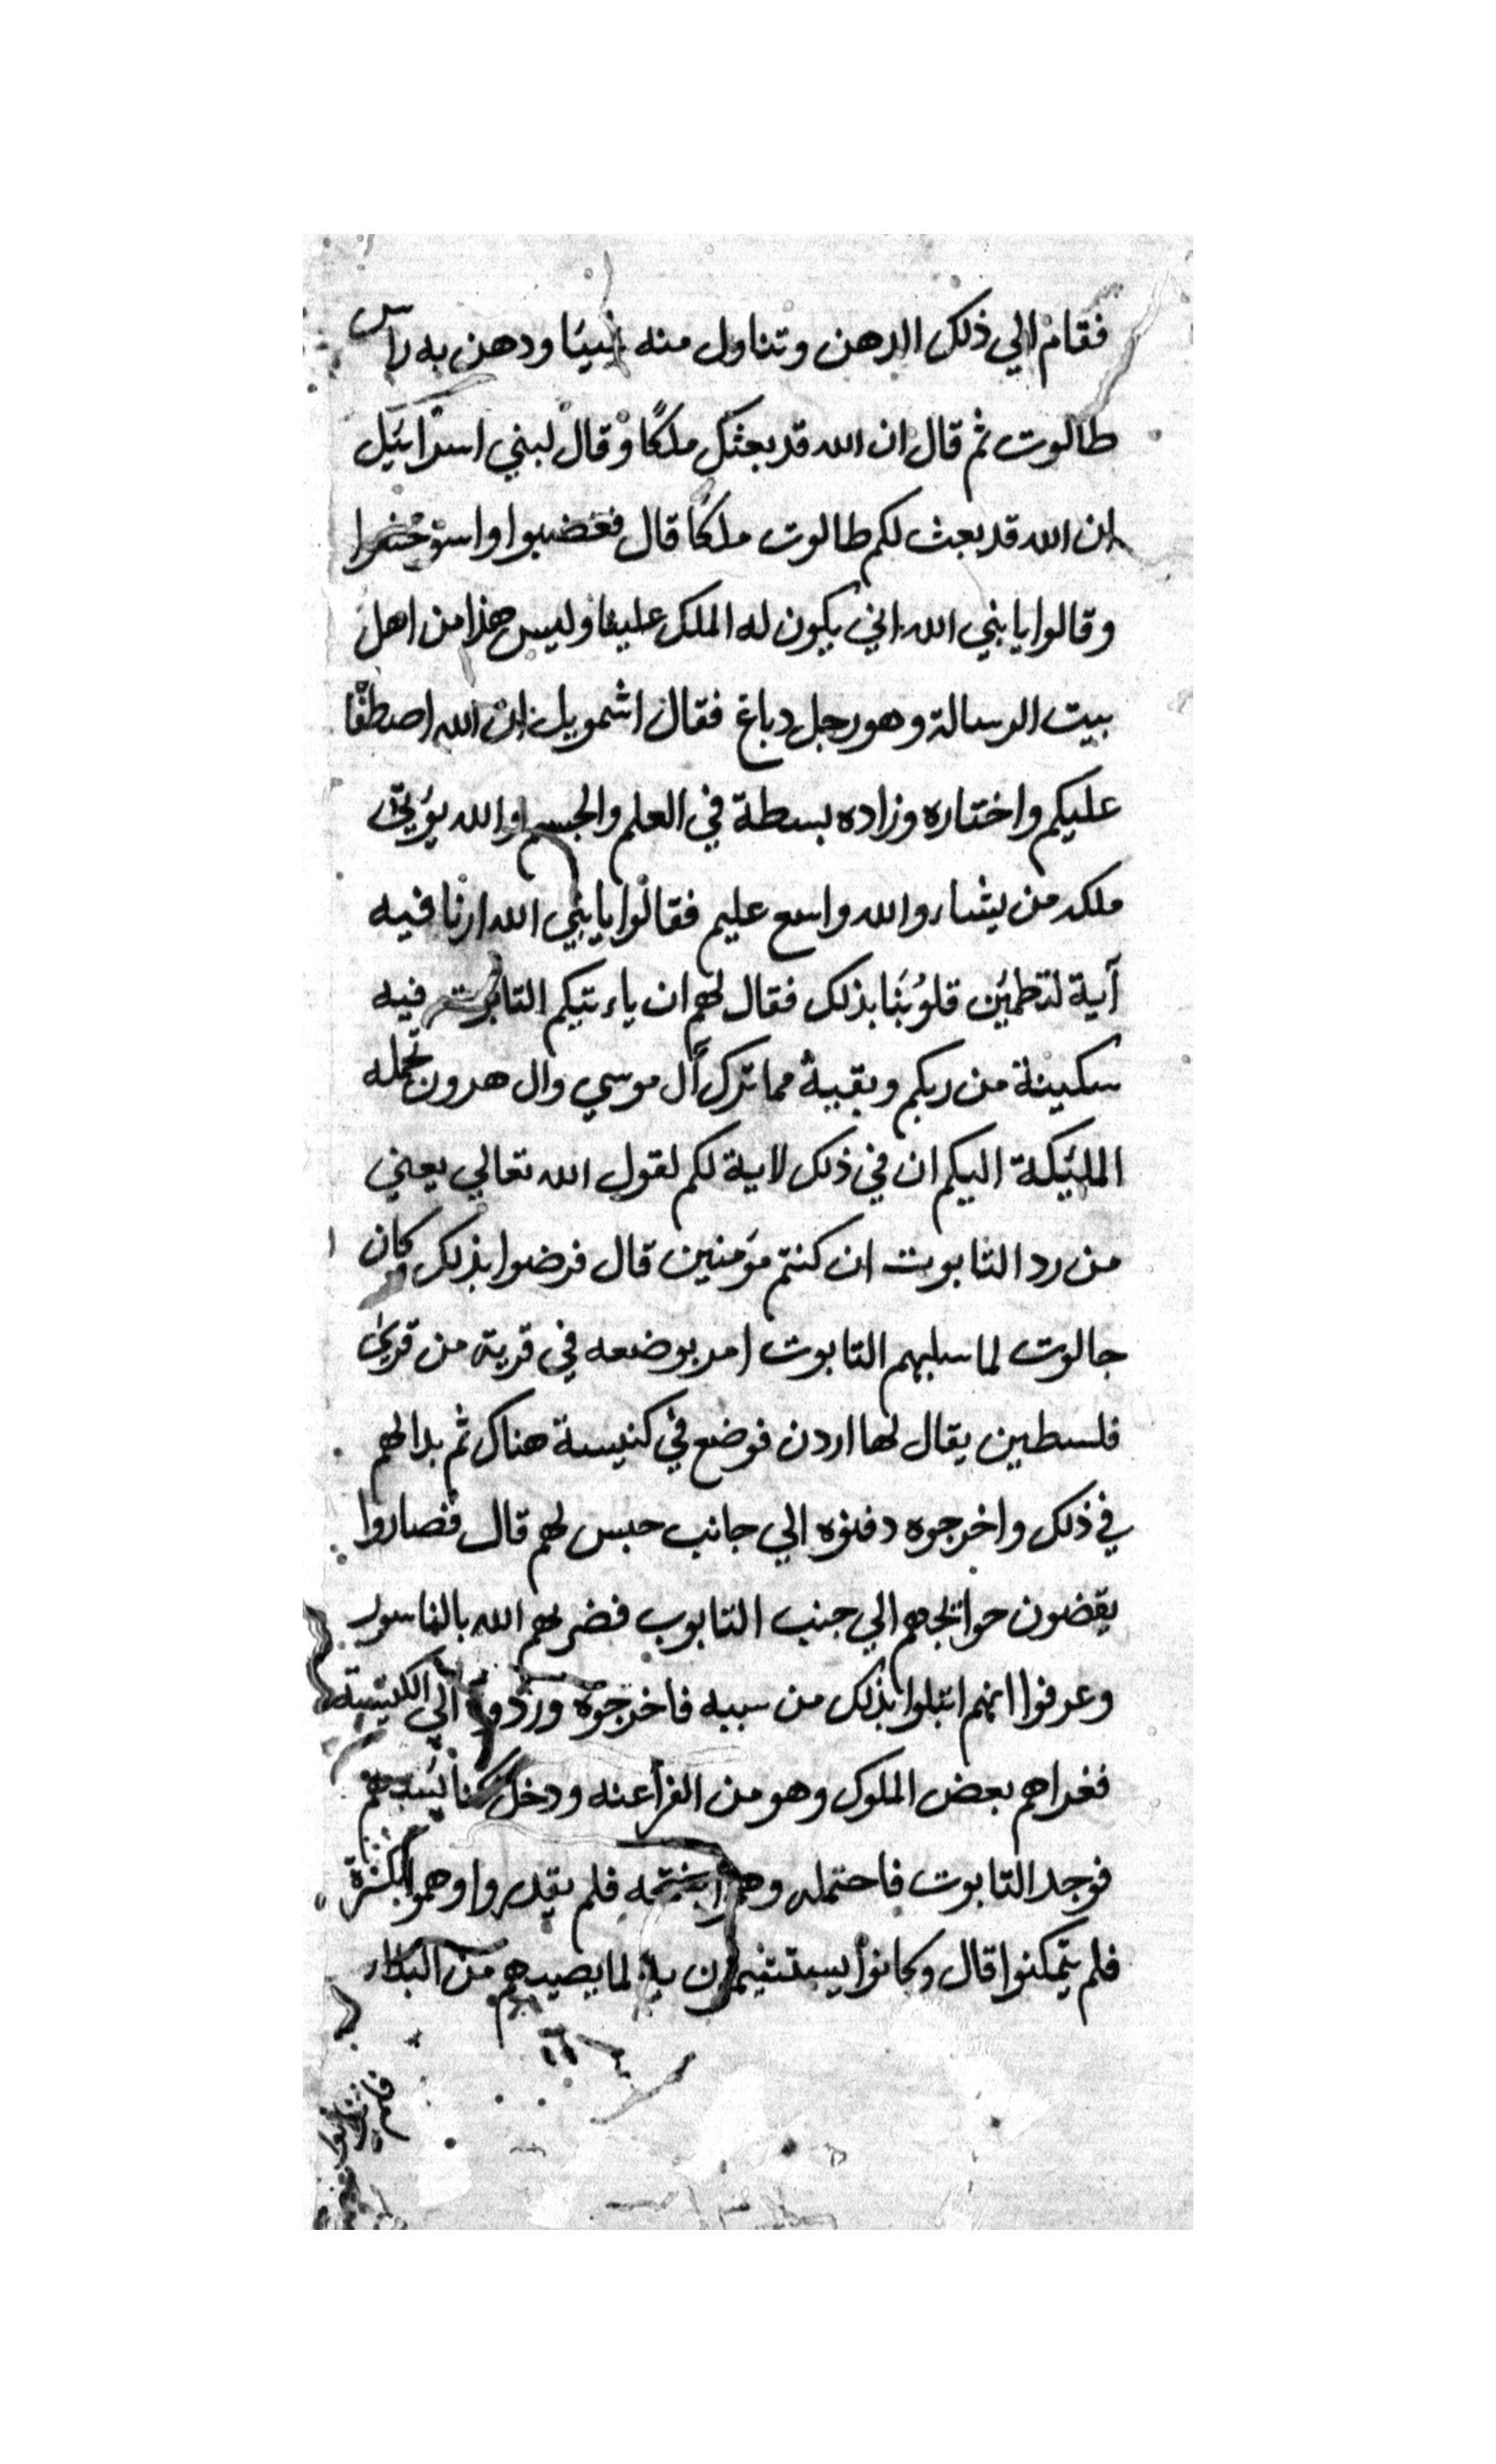 فقام الي ذلك الدهن وتناول منه شيئا ودهن به راس
طالوت ثم قال ان الله قد بعثك ملكًا وقال لبني اسرائيل
ان الله قد بعث لكم طالوت ملكًا قال فغضبوا
وقالوا يا بني الله اني يكون له الملك علينا وليس هذا من اهل
بيت الرسالة وهو رجل دباغ فقال اشمويل ان الله اصطفا
عليكم واختاره وزاده بسطة في العلم والجسم والله يؤتي
ملكه من يشاء والله واسع عليم فقالوا يا بني الله ارنا فيه
آية لتطمئن قلوبنا بذلك فقال لهم ان ياءتيكم التابوت فيه
سكينة من ربكم وبقية مما ترك آل موسي وال هرون تحمله
الملئكة اليكم ان في ذلك لاية لكم لقول الله تعالي يعني
من رد التابوت ان كنتم مؤمنين قال فرضوا بذلك وكان
جالوت لما سلبهم التابوت امر بوضعه في قرية من قري
فلسطين يقال لها اردن فوضع في كنيسة هناك ثم بدا لهم
في ذلك واخرجوه دفنوه الي جانب حبس لهم قال فصاروا
يقضون حوائجهم الي جنب التابوب فضربهم الله بالناسور
وعرفوا انهم ابتلوا بذلك من سببه فاخرجوه وردوه الي الكنيسة
فغزاهم بعض الملوك وهو من الفراعنه ودخل كنائسهم
فوجد التابوت فاحتمله وهم بفتحه فلم يقدروا وهموا بكسره
فلم يتمكنوا قال وكانوا به لما يصيبهم من البلاء